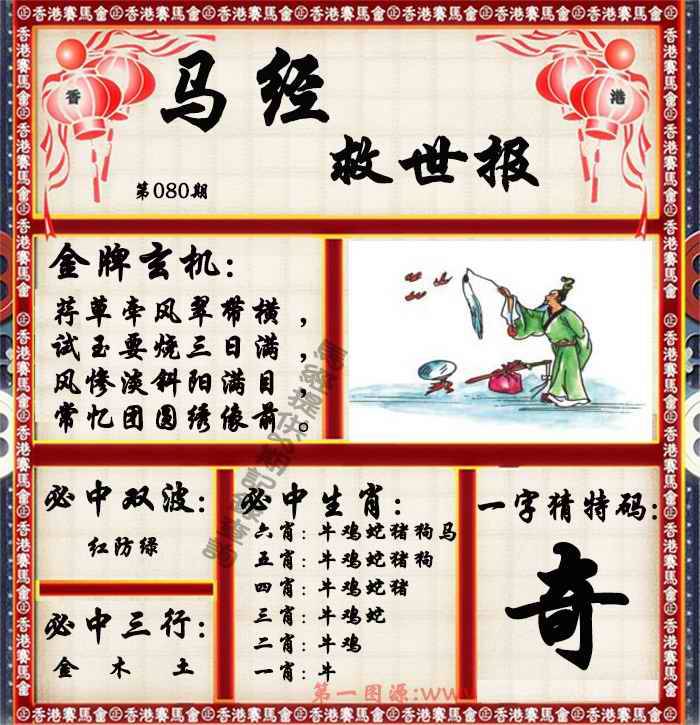 香港賽馬會
香
港
马经
救世报
第080期
金牌玄机：
荇草牵风翠带横，
试玉要烧三日满，
风惨淡斜阳满目，
常忆团圆绣像前。
必中双波：
红防绿
必中三行：
金 木 土
必中生肖：
六肖：牛鸡蛇猪狗马
五肖：牛鸡蛇猪狗
四肖：牛鸡蛇猪
三肖：牛鸡蛇
二肖：牛鸡
一肖：牛
一字猜特码：
奇
第一图源:www